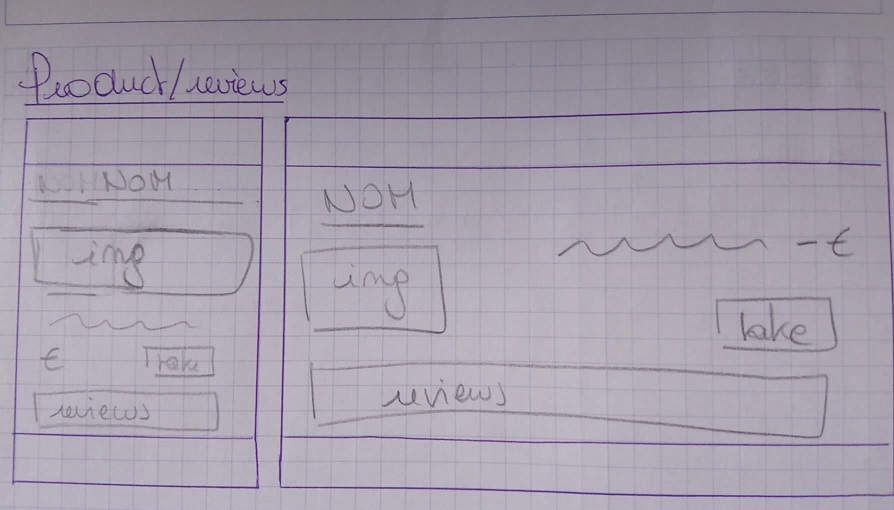 Product/reviews
NOM
img
€
take
reviews
NOM
img
- €
take
reviews